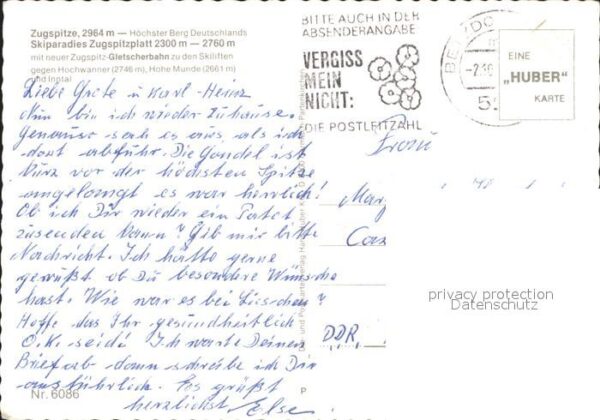 Zugspitze, 2964 m — Höchster Berg Deutschlands
Skiparadies Zugspitzplatt 2300 m — 2760 m
mit neuer Zugspitz-Gletscherbahn zu den Skiliften
gegen Hochwanner (2746 m), Hohe Munde (2661 m)
und Inntal
Liebe Grete u Karl-Heinz
Nun bin ich wieder Zuhause.
Genauso sah es aus als ich
dort abfuhr. Die Gondel ist
kurz vor der höchsten Spitze
angelangt es war herrlich!
Ob ich Dir wieder ein Paket
zusenden kann? Gib mir bitte
Nachricht. Ich hätte gerne
gewußt ob Du besondere Wünsche
hast. Wie war es bei Lieschen?
Hoffe das Ihr gesundheitlich
O.K. seid! Ich warte Deinen
Brief ab dann schreibe ich Dir
ausführlich. Es grüßt
herzlichst Else
Nr. 6086
BITTE AUCH IN DER
ABSENDERANGABE
VERGISS
MEIN
NICHT:
DIE POSTLEITZAHL
EINE
„HUBER"
KARTE
Frau
DDR
P
privacy protection
Datenschutz